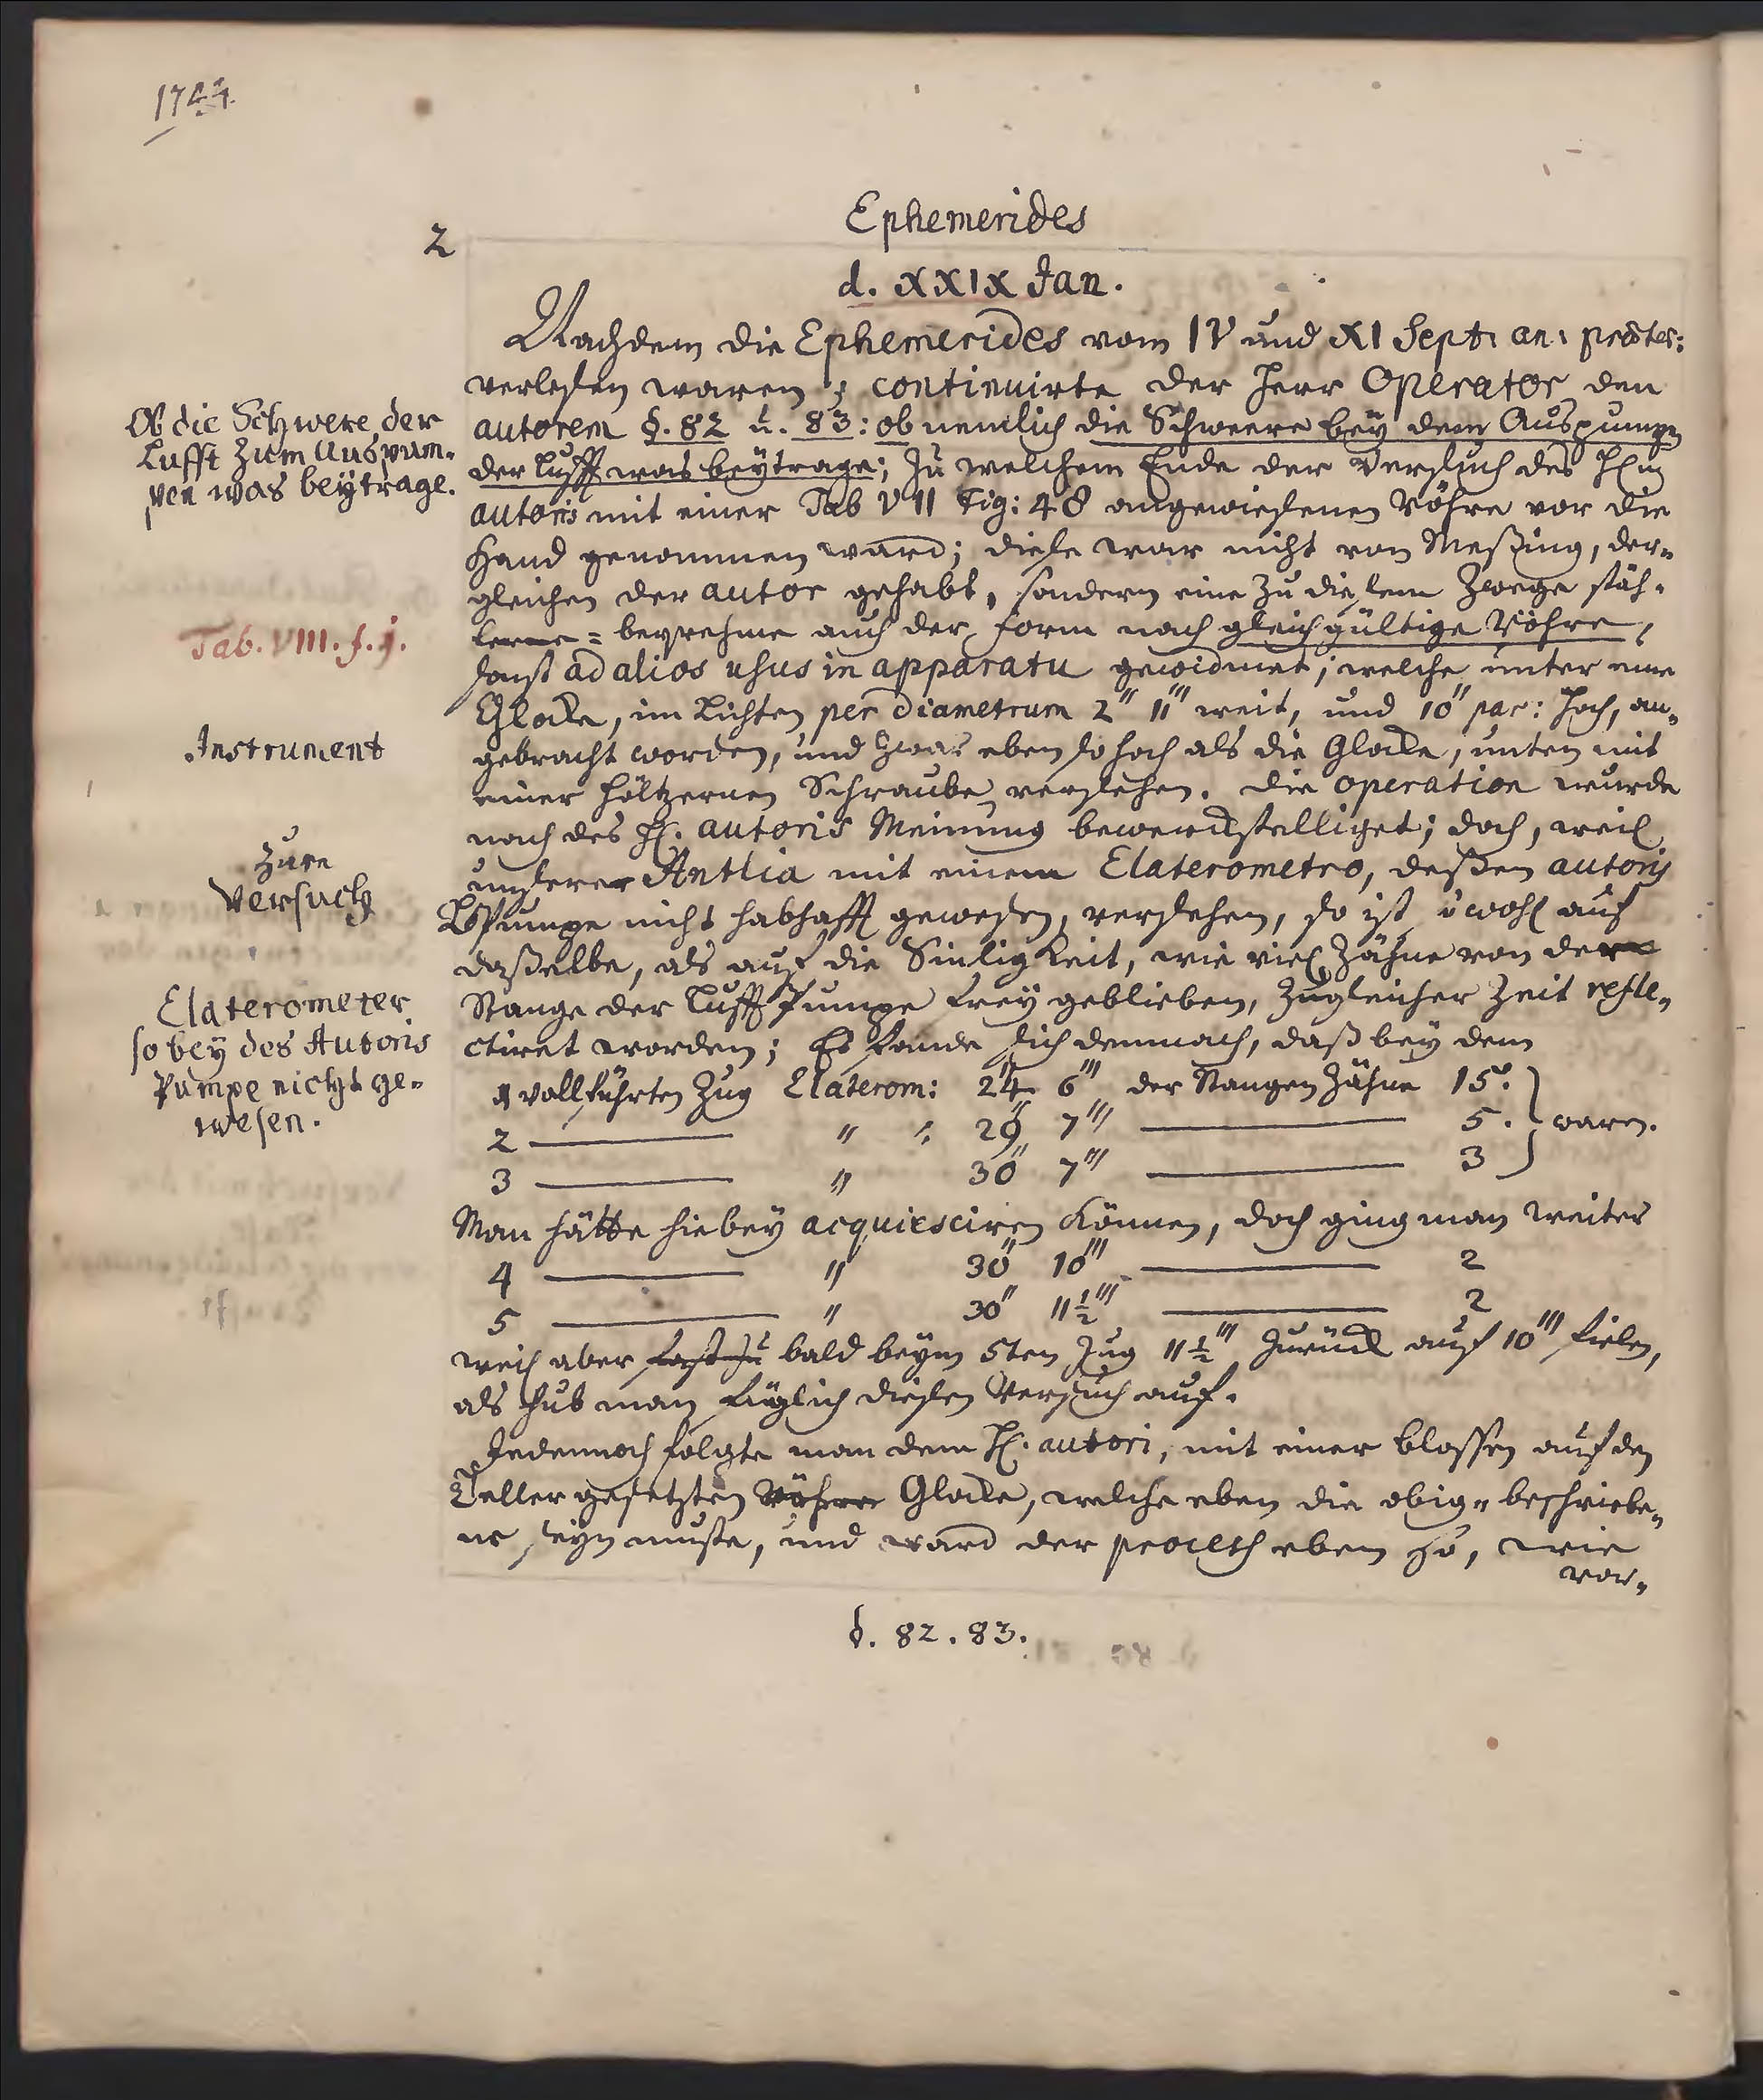 1744.
Ephemerides
2
d. XXIX Jan.
Nachdem die Ephemerides vom IV und XI Sept. an: præter:
verlesen waren; continuirte der Herr Operator den
autorem §. 82 u. 83: ob nemlich die Schweere bey dem Auspumpen
der Lufft was beytrage; zu welchem Ende der Versuch des Hn
autoris mit einer Tab VII Fig: 48 angewiesenen Röhre vor die
Hand genommen ward; diese war nicht von Meßing, der„
gleichen der autor gehabt, sondern eine zu diesem Zwege stäh„
lerne = beqvehme auch der form nach gleichgültige Röhre,
sonst ad alios usus in apparatu gewidmet; welche unter eine
Glocke, im Lichten per diametrum 2" 11''' weit, und 10" par: hoch, an„
gebracht worden, und zwar eben so hoch als die Glocke, unten mit
einer höltzernen Schraube versehen. Die operation wurde
nach des H. autoris Meinung bewerckstelliget; doch, weil
unserer Antlia mit einem Elaterometro, deßen autoris
Pumpe nicht habhafft gewesen, versehen, so ist wohl auf
daßelbe, als auf die wie viel Zähne von der
Stange der Lufft Pumpe frey geblieben, zugleicher Zeit refle„
ctiret worden; Es fande sich demnach, daß bey dem
vollführten Zug Elaterom: 24" 6''' der Stangen Zähne 15.
2 — " " 29" 7''' — 5. } waren.
3 — " 30" 7''' — 3
Man hätte hiebey acquiesciren können, doch ging man weiter
4 — " 30" 10''' — 2
5 — " 30" 11½''' — 2
weil aber fast zu bald beym 5ten Zug 11½''' zurück auf 10''' fielen,
als hub man füglich diesen Versuch auf.
Jedennoch folgte man dem H. autori, mit einer blossen auf den
Teller gesetzten Röhre Glocke, welche eben die obig„ beschriebe„
ne seyn muste, und ward der process eben so, wie
vor„
§. 82. 83.
Ob die Schwere der
Lufft zum Auspum„
pen was beytrage.
Tab. VIII. f. j.
Instrument
zum
Versuch
Elaterometer
so bey des Autoris
Pumpe nicht ge„
wesen.